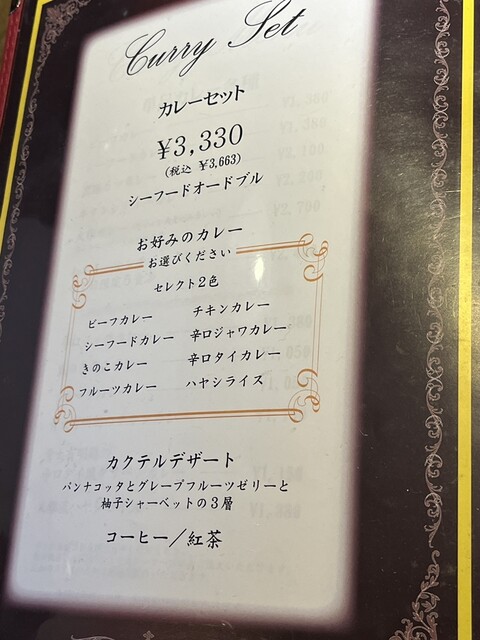 Curry Set
カレーセット
¥3,330
(税込 ¥3,663)
シーフードオードブル
お好みのカレー
お選びください
セレクト2色
ビーフカレー チキンカレー
シーフードカレー 辛口ジャワカレー
きのこカレー 辛口タイカレー
フルーツカレー ハヤシライス
カクテルデザート
パンナコッタとグレープフルーツゼリーと
柚子シャーベットの3層
コーヒー／紅茶